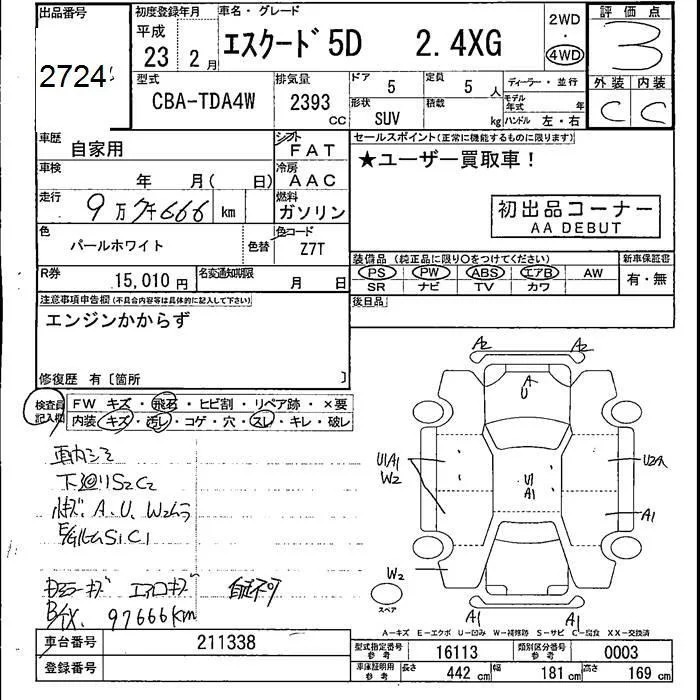 出品番号
2724
初度登録年月
平成
23 2月
車名・グレード
エスクード 5D 2.4XG
2WD
・
4WD
評価点
3
外装 内装
C C
型式
CBA-TDA4W
排気量
2393 CC
ドア 5
定員 5 人
形状 SUV
積載 kg
ディーラー・並行
モデル年式 年
ハンドル 左・右
車歴 自家用
シフト FAT
車検 年 月( 日)
冷房 AAC
走行 9万7千666 km
燃料 ガソリン
色 パールホワイト
色替
色コード Z7T
R券 15,010円
名変通知期限 月 日
セールスポイント(正常に機能するものに限ります)
★ユーザー買取車!
初出品コーナー
AA DEBUT
装備品(純正品に限り○をつけてください)
PS PW ABS エアB AW
SR ナビ TV カワ
新車保証書
有・無
後日品
注意事項申告欄(不具合内容等は具体的に記入して下さい)
エンジンかからず
修復歴 有〔箇所 〕
検査員記入欄
FW キズ・飛石・ヒビ割・リペア跡・×要
内装・キズ・汚レ・コゲ・穴・スレ・キレ・破レ
車内シミ
下廻りS2C2
小キズ、A、U、W2ムラ
E/GルームS1C1
エアロキズ
自走不可
97666km
A2 A2
A
U
U1A1
W2
U1
A1
U2A
A1
W2
A1 A1
スペア
A-キズ E-エクボ U-凹み W-補修跡 S-サビ C-腐食 XX-交換済
車台番号 211338
登録番号
型式指定番号 参考 16113
類別区分番号 参考 0003
車庫証明用 参考
長さ 442 cm 幅 181 cm 高さ 169 cm